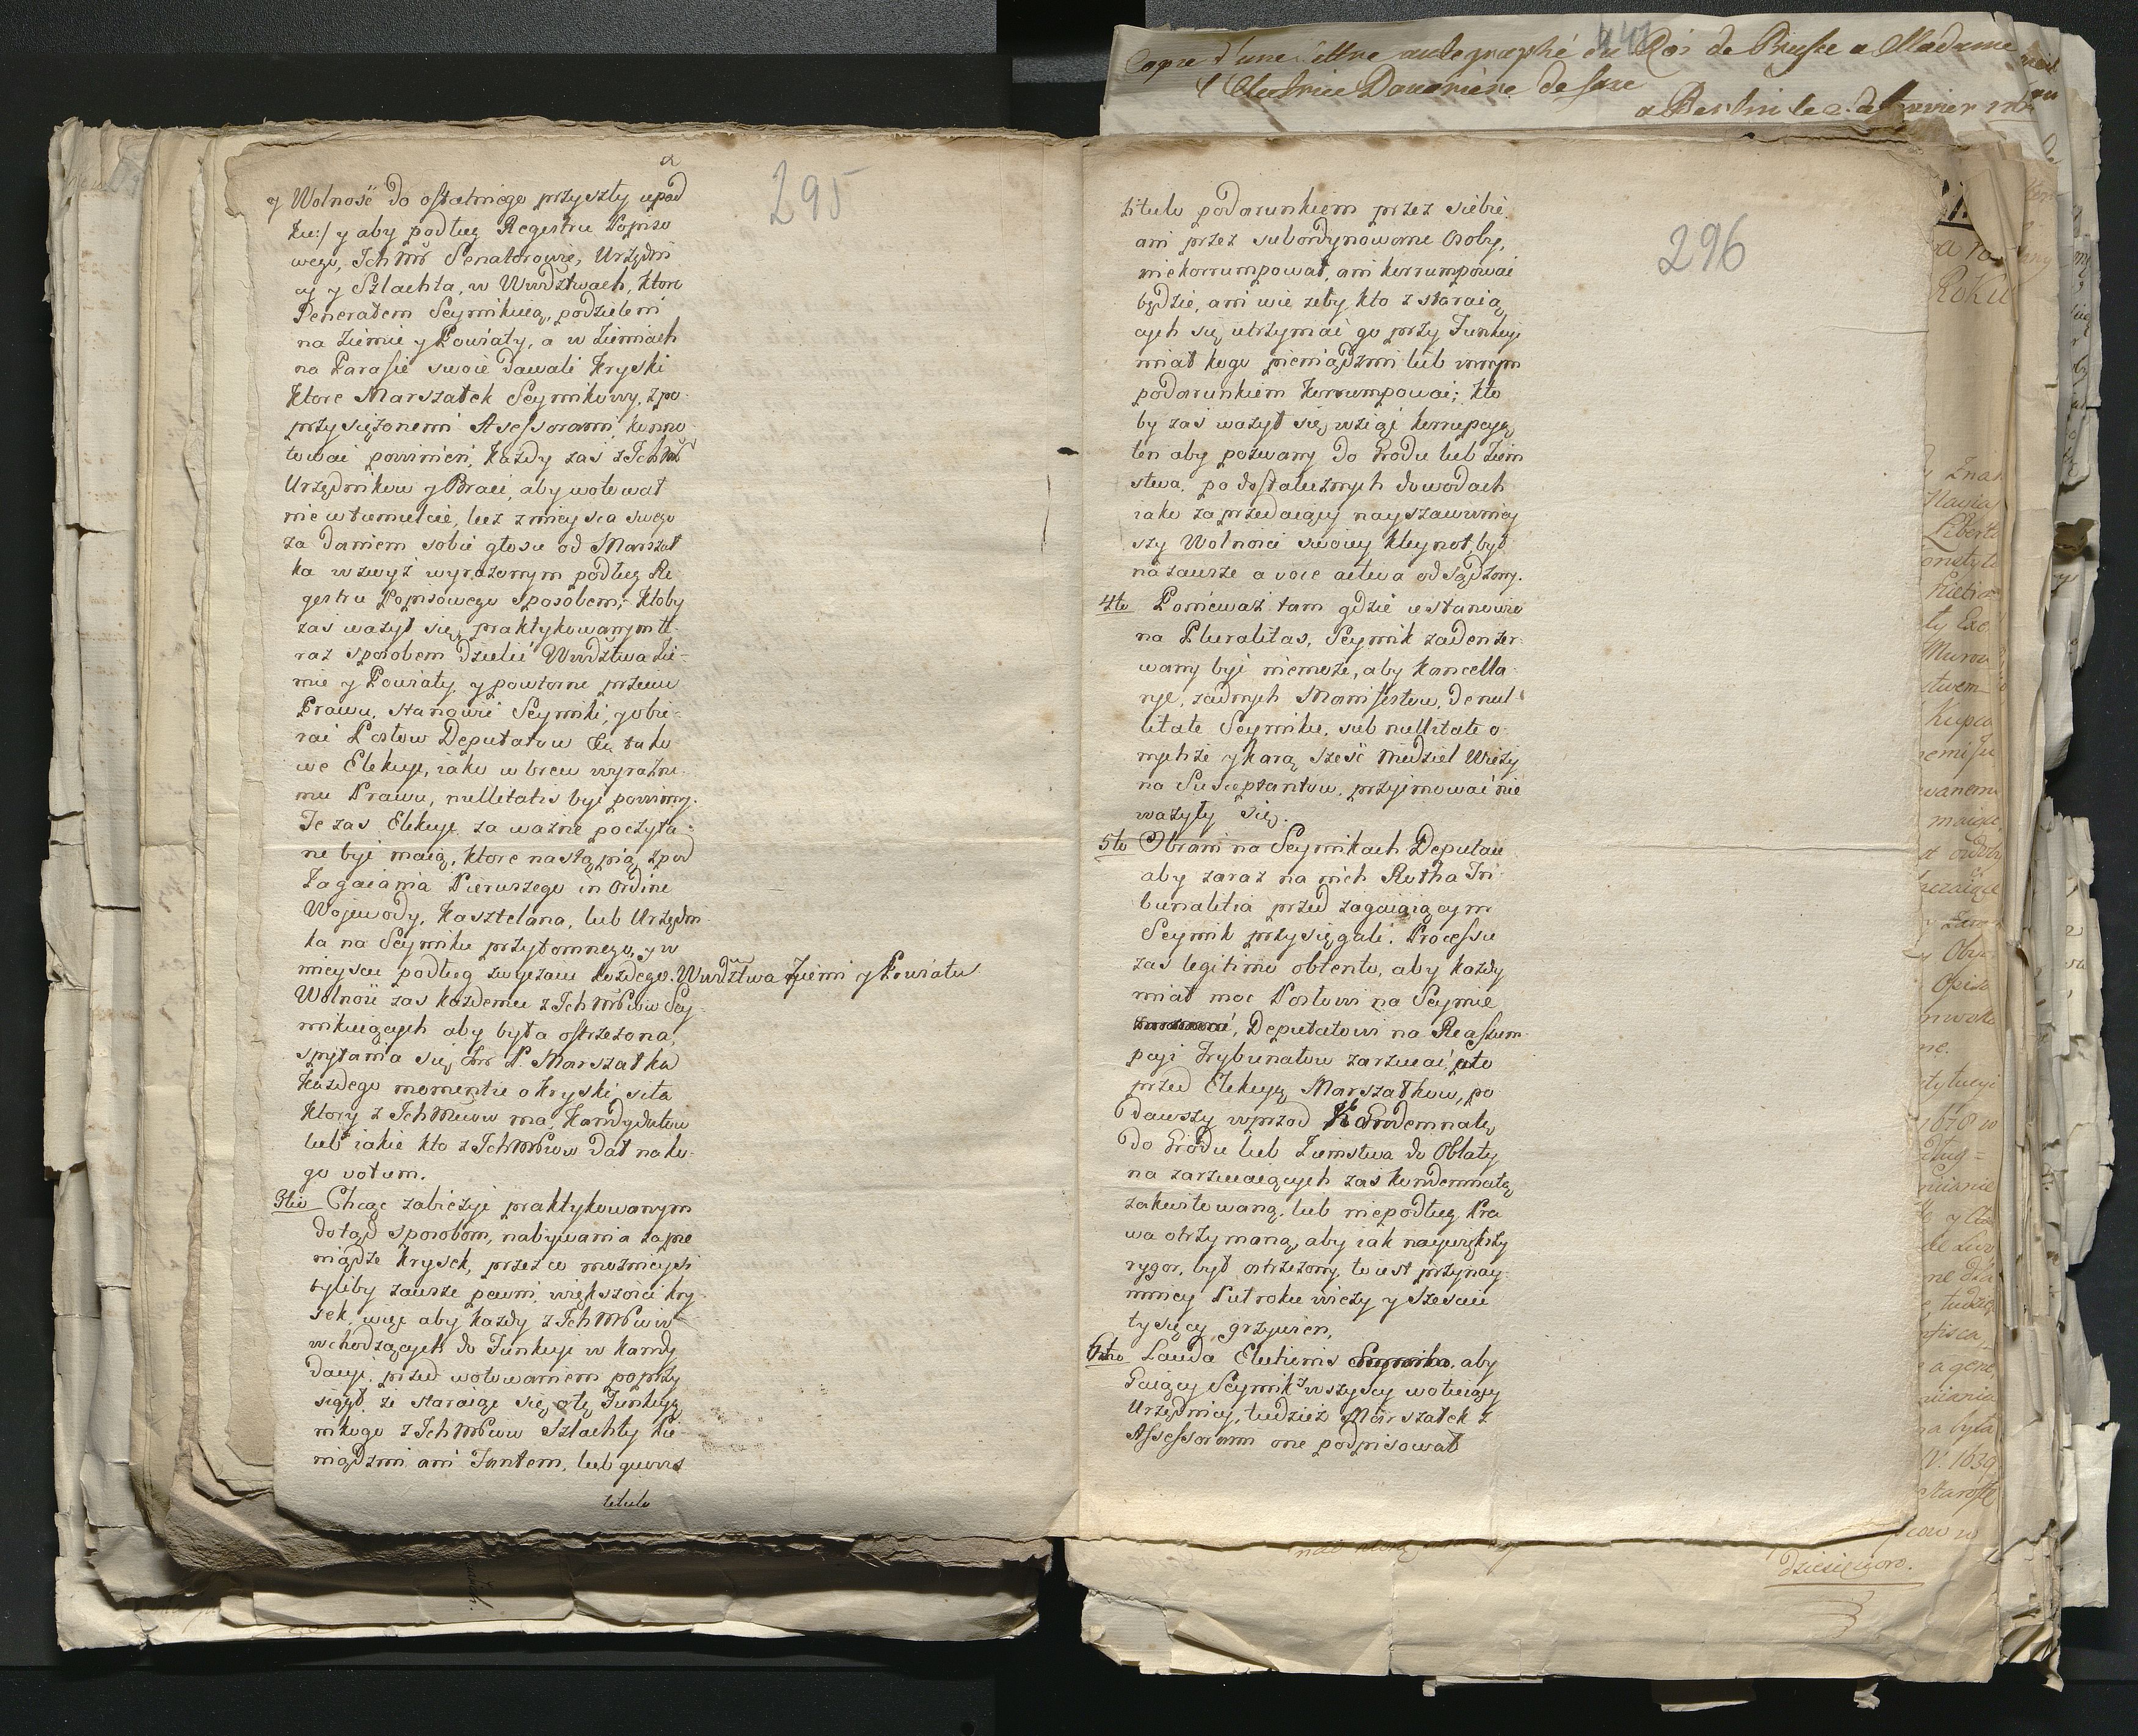 Copie d'une lettre autographé du Roi de Prusse a Madame
l'Electrice Douariere de Saxe
a Berlin le 2. de Janvier
295
y Wolność do ostatniego przyszły upad
ku:/ y aby podług Regestru Popiso
wego, Ich Mść Senatorowie, Urzędni
cy y Szlachta, w Wwdztwach, ktore
Generałem Seymikuią, podzieleni
na Ziemie y Powiaty, a w Ziemiach
na Parafie swoie dawali Kryski
Ktore Marszałek Seymikowy, z po
przysiężonemi Assessorami konno
tować powinien, Każdy zaś z Ich Mść
Urzędnikow y Braci, aby wotował
nie w tumulcie, lecz z mieysca swego
za daniem sobie głosu od Marszał
ka wzwyż wyrażonym podług Re
gestru Popisowego sposobem; Ktoby
zaś ważył się, praktykowanym te
raz sposobem dzielić Wwdztwa Zie-
mie y Powiaty, y powtorne przeciw
Prawu, stanowić Seymiki, y obie-
rać Posłow Deputatow &c tako
we Elekcye, iako w brew wyraźne
mu Prawu, nullitatis być powinny.
Te zaś Elekcye za ważne poczyta
ne być maią, ktore nastąpią zpod
Zagaiania Pierwszego in Ordine
Wojewody, Kasztelana, lub Urzędni
ka na Seymiku przytomnego, y w
mieyscu podług zwyczaiu każdego Wwdztwa Ziemi y Powiatu
Wolność zaś każdemu z Ich Mściow Sey-
mikuiących aby była ostrzeżona,
spytania się Jmć P. Marszałka
Każdego momentu o Kryski, siła
Ktory z Ich Mciow ma, Kandydatow
lub iakie kto z Ich Mściow dał na ko-
go votum.
3tio Chcąc zabieżyć praktykowanym
dotąd sposobom, nabywania za pie
niądze Krysek, przez co możnieysi
byliby zawsze pewni większości kry
sek, więc aby każdy z Ich Mściow
wchodzących do Funkcyi w Kandy
dacyi, przed wotowaniem poprzy
siągł, że staraiąc się o tę Funkcyą
nikogo z Ich Mściow Szlachty Pie
niądzmi ani Fantem, lub quovis
titulo
296
titulo podarunkiem przez siebie
ani przez subordynowane Osoby,
niekorrumpował, ani korrumpować
będzie, ani wie żeby kto z staraią
cych się utrzymać go przy Funkcyi
miał kogo pieniądzmi lub innym
podarunkiem Korrumpować; kto
by zaś ważył się wziąć korrupcyą
ten aby pozwany do Grodu lub Ziem
stwa, po dostatecznych dowodach
iako zaprzedaiący nayszacowniey
szy Wolności swoiey Kleynot, był
na zawsze a voce activa odsądzony.
4to Ponieważ tam gdzie ustanowio
na Pluralitas, Seymik żaden zer
wany być niemoże, aby Kancella
rye, żadnych Manifestow, de nul
litate Seymiku, sub nullitate o
nychże y karą Sześć Niedziel Wieży
na Susceptantow, przyjmować nie
ważyły się.
5to Obrani na Seymikach Deputaci
aby zaraz na nich Rotha Tri
bunalitia przed zagaiaiącym
Seymik przysięgali. Processu
zaś legitime obtento, aby każdy
miał moc Posłowi na Seymie
Deputatowi na Reassum
pcyi Trybunałow zarzucać, a to
przed Elekcyą Marszałkow, po
dawszy wprzod Kondemnatę
do Grodu lub Ziemstwa do Oblaty
na zarzucaiących zaś kondemnatę
zakwitowaną, lub niepodług Pra
wa otrzymaną, aby iak naywiększy
rygor, był ostrzeżony, to iest przynay
mniey Puł roku wieży y sześciu
tysięcy grzywien.
6to Lauda Electionis Seymiku, aby
Gaiący Seymik wszyscy wotuiący
Urzędnicy, tudzież Marszałek z
Assessorami one podpisował
Roku
dziesięcioro.